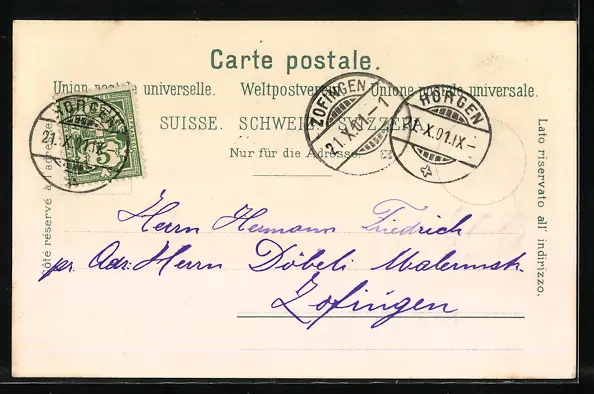 Carte postale.
Union postale universelle. Weltpostverein. Unione postale universale.
SUISSE. SCHWEIZ. SVIZZERA.
Nur für die Adresse.
Côté réservé à l'adresse.
Lato riservato all' indirizzo.
HORGEN
21.X.01.IX
5
ZOFINGEN
21.X.01-1
HORGEN
21.X.01.IX-
Herrn Hermann Friedrich
pr. Adr. Herrn Döbeli Malermstr.
Zofingen